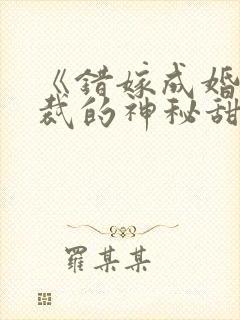 《错嫁成婚
裁的神秘甜
羅某某